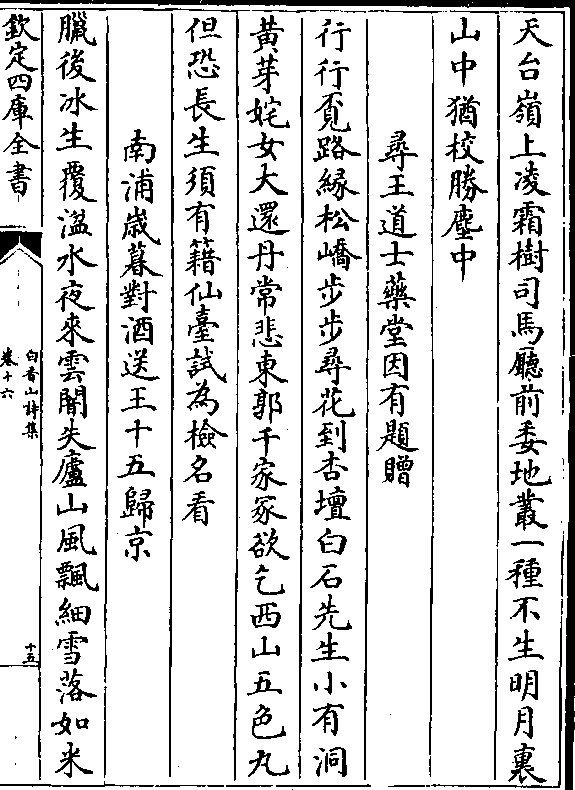 天台嶺上凌霜樹司馬廳前委地叢一種不生明月裏
山中猶校勝塵中
尋王道士藥堂因有題贈
行行覓路縁松嶠步步尋花到杏壇白石先生小有洞
黄芽姹女大還丹常悲東郭千家冢欲乞西山五色丸
但恐長生須有籍仙臺試為檢名看
南浦歲暮對酒送王十五歸京
臘後冰生覆湓水夜來雲闇失廬山風飄細雪落如米
欽定四庫全書
白香山詩集
卷十六
十五